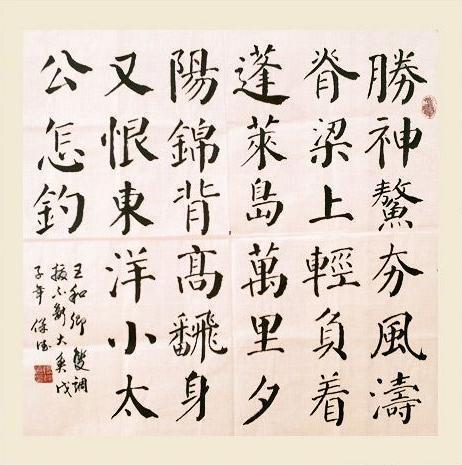 勝神鰲夯風濤
脊梁上輕負着
蓬萊島萬里夕
陽錦背髙飜身
又恨東洋小太
公怎釣
王和卿雙調
撥不斷大魚戊
子年